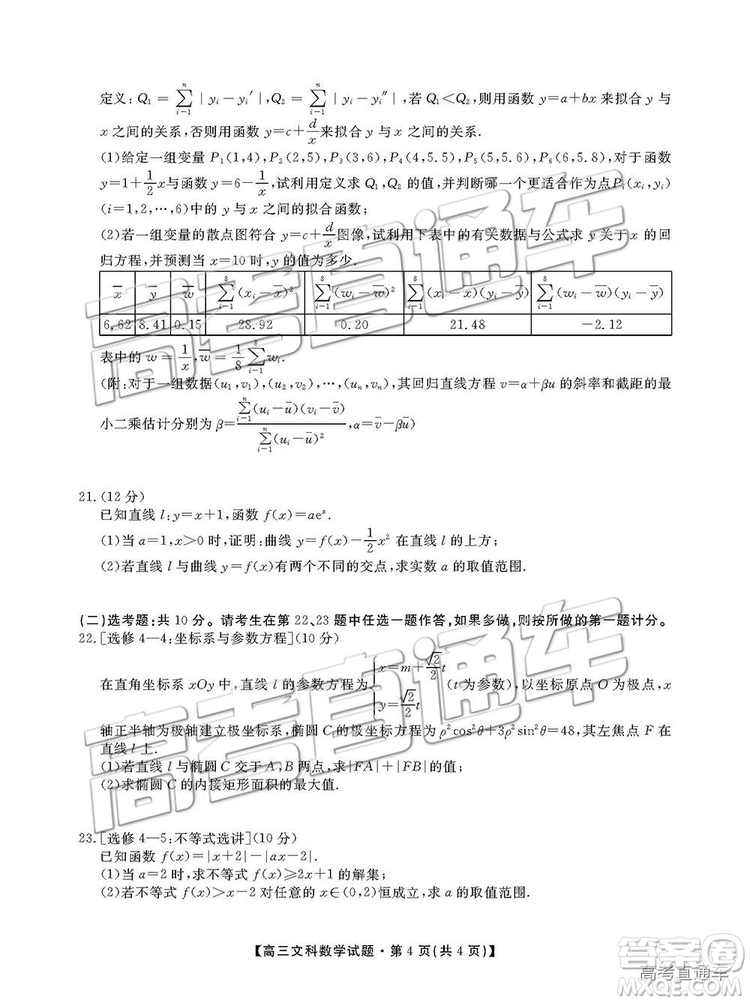 定义:Q₁=∑ⁿᵢ₌₁|yᵢ-yᵢ′|,Q₂=∑ⁿᵢ₌₁|yᵢ-yᵢ″|,若 Q₁<Q₂,则用函数 y=a+bx 来拟合 y 与
x 之间的关系,否则用函数 y=c+d/x 来拟合 y 与 x 之间的关系.
(1)给定一组变量 P₁(1,4),P₂(2,5),P₃(3,6),P₄(4,5.5),P₅(5,5.6),P₆(6,5.8),对于函数
y=1+1/2x 与函数 y=6-1/x,试利用定义求 Q₁,Q₂ 的值,并判断哪一个更适合作为点 Pᵢ(xᵢ,yᵢ)
(i=1,2,…,6)中的 y 与 x 之间的拟合函数;
(2)若一组变量的散点图符合 y=c+d/x 图像,试利用下表中的有关数据与公式求 y 关于 x 的回
归方程,并预测当 x=10 时,y 的值为多少.
x̄ ȳ w̄ ∑⁸ᵢ₌₁(xᵢ-x̄)² ∑⁸ᵢ₌₁(wᵢ-w̄)² ∑⁸ᵢ₌₁(xᵢ-x̄)(yᵢ-ȳ) ∑⁸ᵢ₌₁(wᵢ-w̄)(yᵢ-ȳ)
6.62 8.41 0.15 28.92 0.20 21.48 -2.12
表中的 w=1/x,w̄=1/8∑⁸ᵢ₌₁wᵢ.
(附:对于一组数据(u₁,v₁),(u₂,v₂),…,(uₙ,vₙ),其回归直线方程 v=α+βu 的斜率和截距的最
小二乘估计分别为 β=∑ⁿᵢ₌₁(uᵢ-ū)(vᵢ-v̄)/∑ⁿᵢ₌₁(uᵢ-ū)²,α=v̄-βū)
21.(12 分)
已知直线 l:y=x+1,函数 f(x)=aeˣ.
(1)当 a=1,x>0 时,证明:曲线 y=f(x)-1/2x² 在直线 l 的上方;
(2)若直线 l 与曲线 y=f(x)有两个不同的交点,求实数 a 的取值范围.
(二)选考题:共 10 分。请考生在第 22、23 题中任选一题作答,如果多做,则按所做的第一题计分。
22.[选修 4—4:坐标系与参数方程](10 分)
在直角坐标系 xOy 中,直线 l 的参数方程为{x=m+√2/2t, y=√2/2t (t 为参数),以坐标原点 O 为极点,x
轴正半轴为极轴建立极坐标系,椭圆 C 的极坐标方程为 ρ²cos²θ+3ρ²sin²θ=48,其左焦点 F 在
直线 l 上.
(1)若直线 l 与椭圆 C 交于 A,B 两点,求|FA|+|FB|的值;
(2)求椭圆 C 的内接矩形面积的最大值.
23.[选修 4—5:不等式选讲](10 分)
已知函数 f(x)=|x+2|-|ax-2|.
(1)当 a=2 时,求不等式 f(x)≥2x+1 的解集;
(2)若不等式 f(x)>x-2 对任意的 x∈(0,2)恒成立,求 a 的取值范围.
【高三文科数学试题·第 4 页(共 4 页)】
高考直通车
高考直通车
高考直通车
MXQE.COM